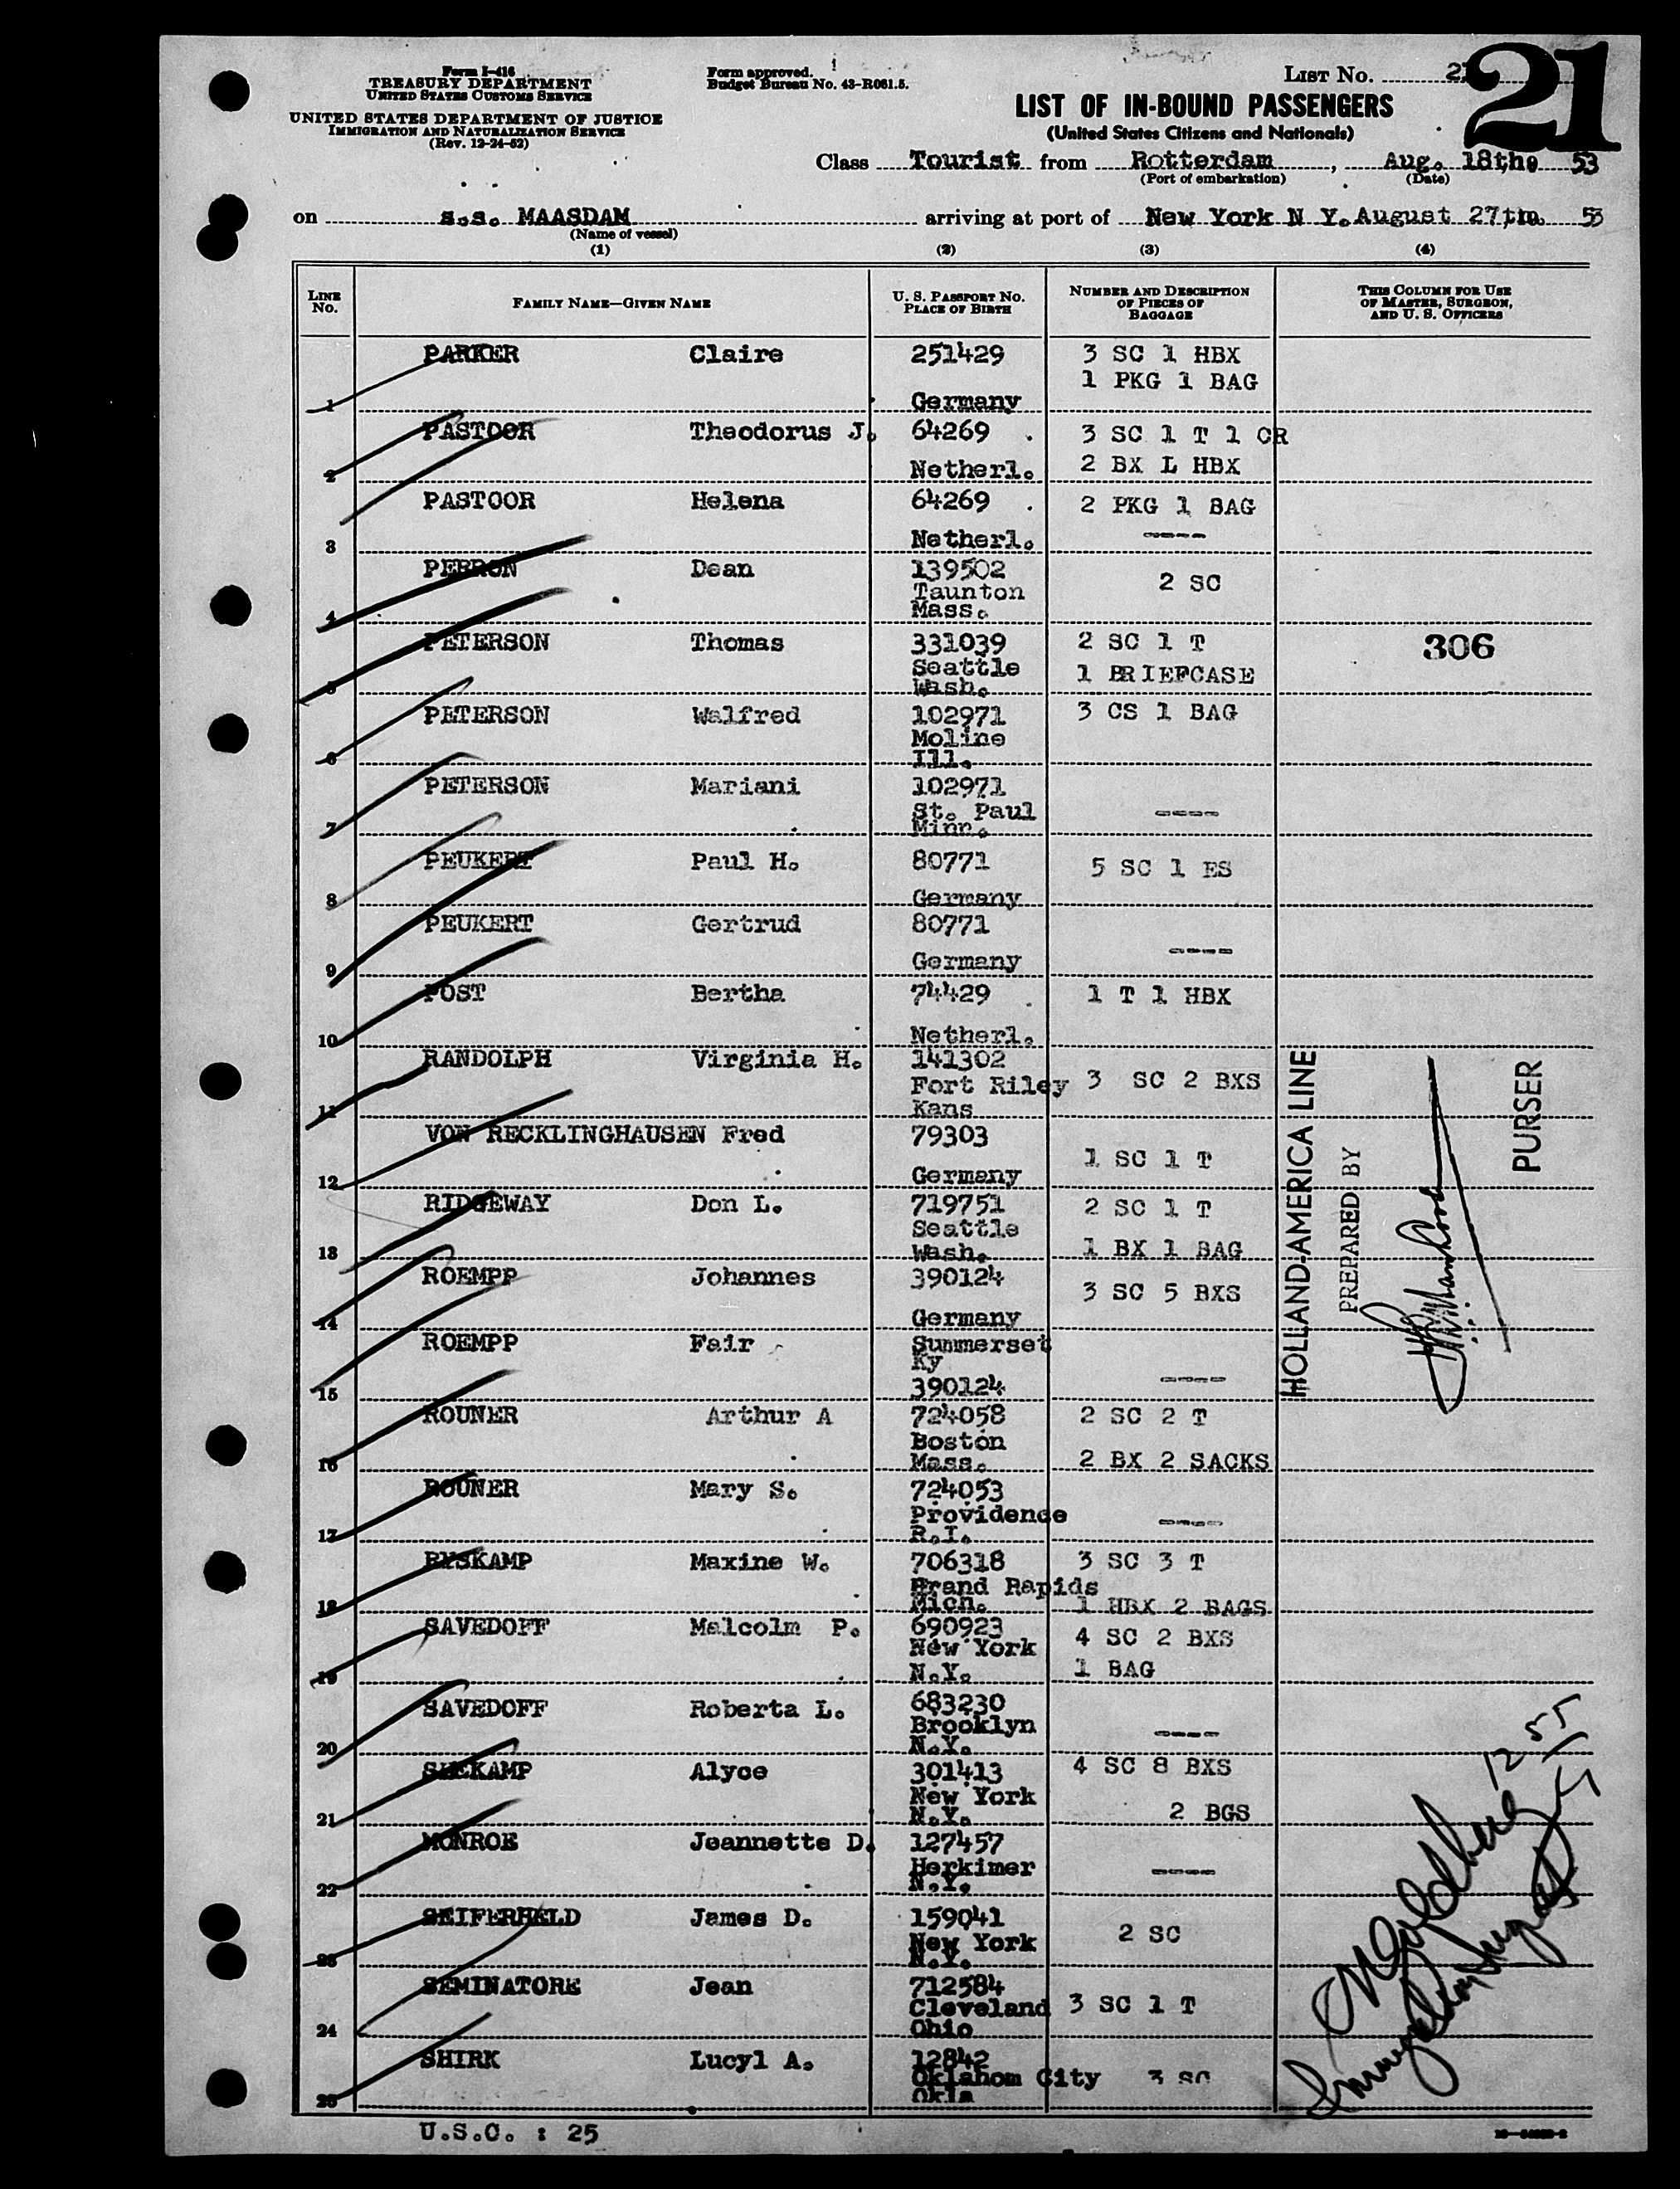 Form I-416
TREASURY DEPARTMENT
UNITED STATES CUSTOMS SERVICE
UNITED STATES DEPARTMENT OF JUSTICE
IMMIGRATION AND NATURALIZATION SERVICE
(Rev. 12-24-52)
Form approved.
Budget Bureau No. 43-R061.5.
LIST No. 21
21
LIST OF IN-BOUND PASSENGERS
(United States Citizens and Nationals)
Class Tourist from Rotterdam, Aug. 18th, 53
(Port of embarkation) (Date)
on s.s. MAASDAM arriving at port of New York N Y. August 27th, 53
(Name of vessel)
(1) (2) (3) (4)
LINE No. FAMILY NAME—GIVEN NAME U. S. PASSPORT No. PLACE OF BIRTH NUMBER AND DESCRIPTION OF PIECES OF BAGGAGE THIS COLUMN FOR USE OF MASTER, SURGEON, AND U. S. OFFICERS
PARKER Claire 251429 3 SC 1 HBX
1 PKG 1 BAG
1 Germany
PASTOOR Theodorus J. 64269 3 SC 1 T 1 CR
2 Netherl. 2 BX L HBX
PASTOOR Helena 64269 2 PKG 1 BAG
3 Netherl. ----
PERRON Dean 139502
Taunton 2 SC
4 Mass.
PETERSON Thomas 331039 2 SC 1 T 306
Seattle 1 BRIEFCASE
5 Wash.
PETERSON Walfred 102971 3 CS 1 BAG
Moline
6 Ill.
PETERSON Mariani 102971
St. Paul ----
7 Minn.
PEUKERT Paul H. 80771 5 SC 1 ES
8 Germany
PEUKERT Gertrud 80771
----
9 Germany
POST Bertha 74429 1 T 1 HBX
10 Netherl.
RANDOLPH Virginia H. 141302
Fort Riley 3 SC 2 BXS
11 Kans
VON RECKLINGHAUSEN Fred 79303
1 SC 1 T
12 Germany
RIDGEWAY Don L. 719751 2 SC 1 T
Seattle
13 Wash. 1 BX 1 BAG
ROEMPP Johannes 390124
3 SC 5 BXS
14 Germany
ROEMPP Fair Summerset
Ky
15 390124 ----
ROUNER Arthur A 724058 2 SC 2 T
Boston
16 Mass. 2 BX 2 SACKS
ROUNER Mary S. 724053
Providence ----
17 R.I.
RYSKAMP Maxine W. 706318 3 SC 3 T
Brand Rapids
18 Mich. 1 HBX 2 BAGS
SAVEDOFF Malcolm P. 690923 4 SC 2 BXS
New York
19 N.Y. 1 BAG
SAVEDOFF Roberta L. 683230
Brooklyn ----
20 N.Y.
SIEKAMP Alyce 301413 4 SC 8 BXS
New York
21 N.Y. 2 BGS
MONROE Jeannette D. 127457
Herkimer ----
22 N.Y.
SEIFERHELD James D. 159041
New York 2 SC
23 N.Y.
SEMINATORE Jean 712584
Cleveland 3 SC 1 T
24 Ohio
SHIRK Lucyl A. 12842
Oklahom City 3 SC
25 Okla
U.S.C. : 25
HOLLAND-AMERICA LINE
PREPARED BY
PURSER